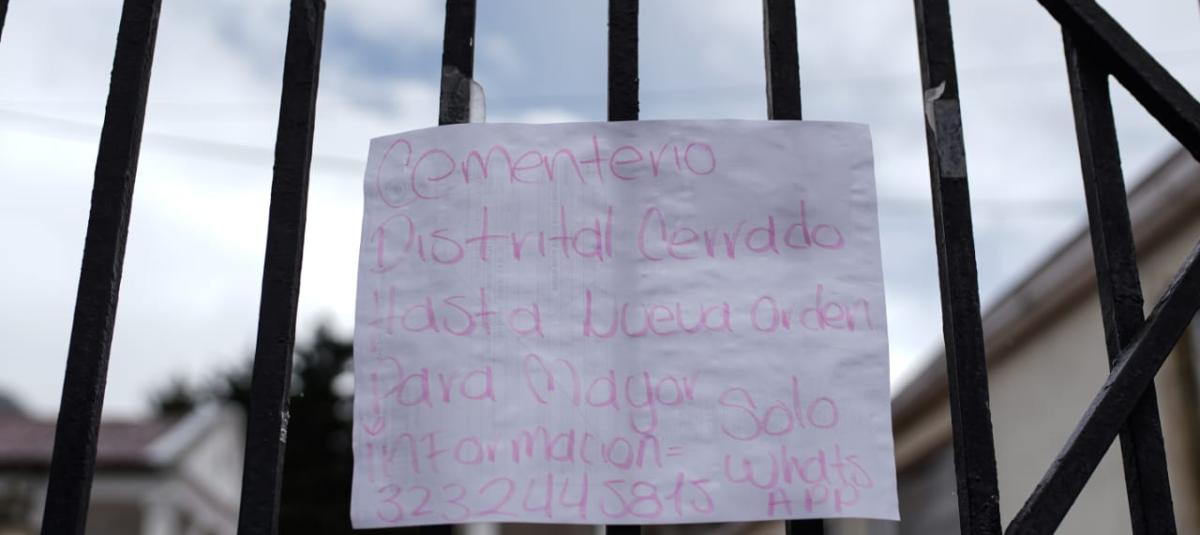 Cementerio
Distrital Cerrado
Hasta Nueva Orden
Para Mayor
informacion=
3232445815
Solo
Whats
APP